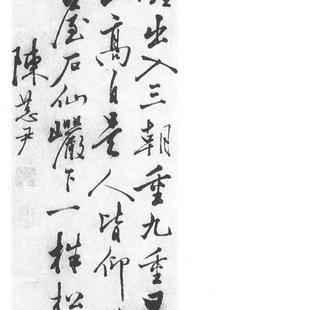 出入三朝重九重
高自是人皆仰
石仙巖下一株松
陳恭尹